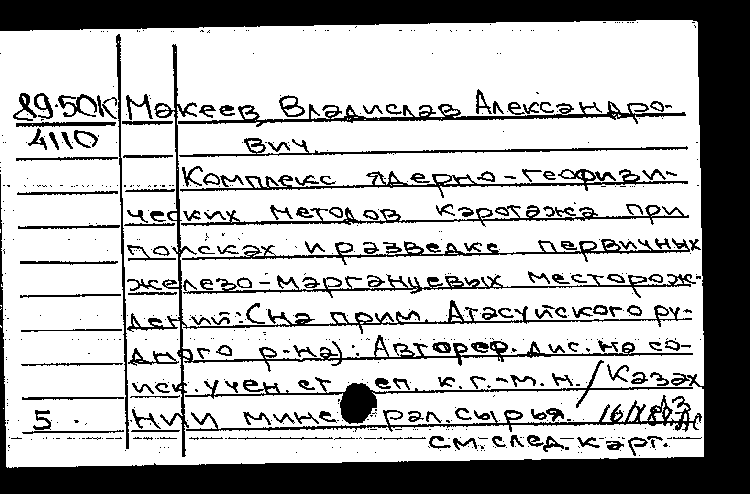 89-50К Макеев, Владислав Александро-
4110 вич.
Комплекс ядерно-геофизи-
ческих методов каротажа при
поисках и разведке первичных
железо-марганцевых месторож-
дений: (на прим. Атасуйского ру-
дного р-на): Автореф. дис. на со-
иск. учен. степ. к.г.-м.н. / Казах
5. НИИ минерал. сырья.
см. след. карт.